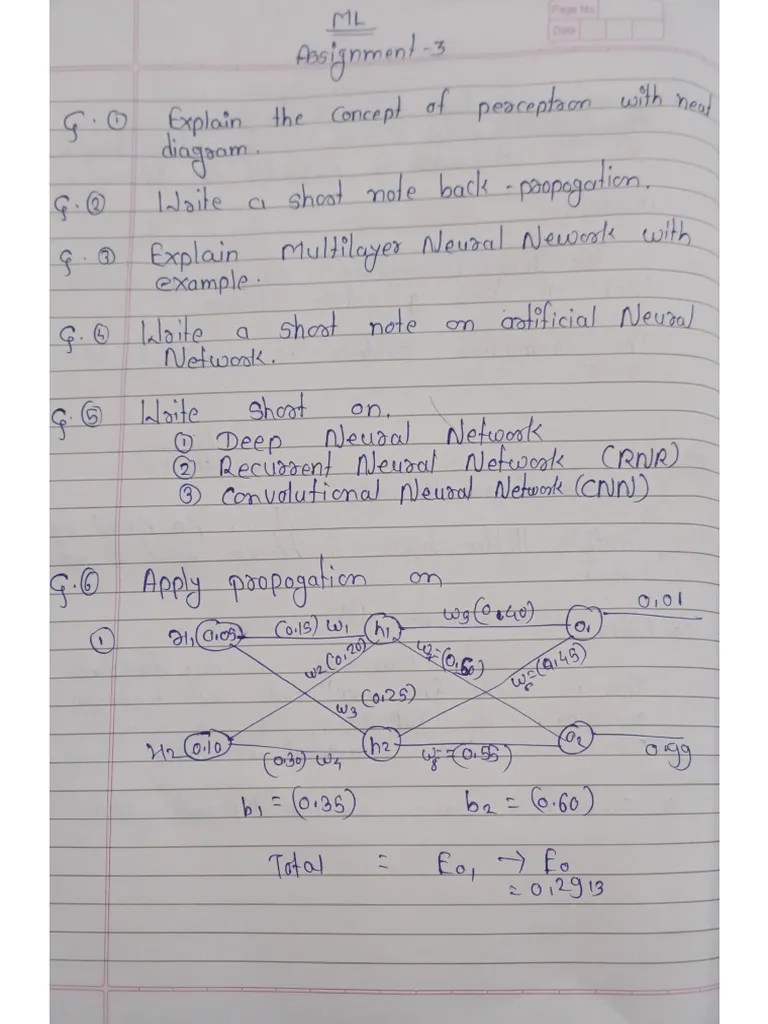 Page No.
Date
ML
Assignment -3
Q.① Explain the Concept of perceptron with neat
diagram.
Q.② Write a short note back-propogation.
Q.③ Explain Multilayer Neural Nework with
example.
Q.④ Write a short note on artificial Neural
Network.
Q.⑤ Write short on.
① Deep Neural Network
② Recurrent Neural Network (RNR)
③ Convolutional Neural Network (CNN)
Q.⑥ Apply propogation on
① x1 0.05 (0.15) w1 h1 (0.40) o1 0.01
w2 (0.20) (0.45)
w3 (0.25)
x2 0.10 (0.30) w4 h2 (0.55) o2 0.99
b1 = (0.35) b2 = (0.60)
Total = Eo1 → Eo
= 0.2913